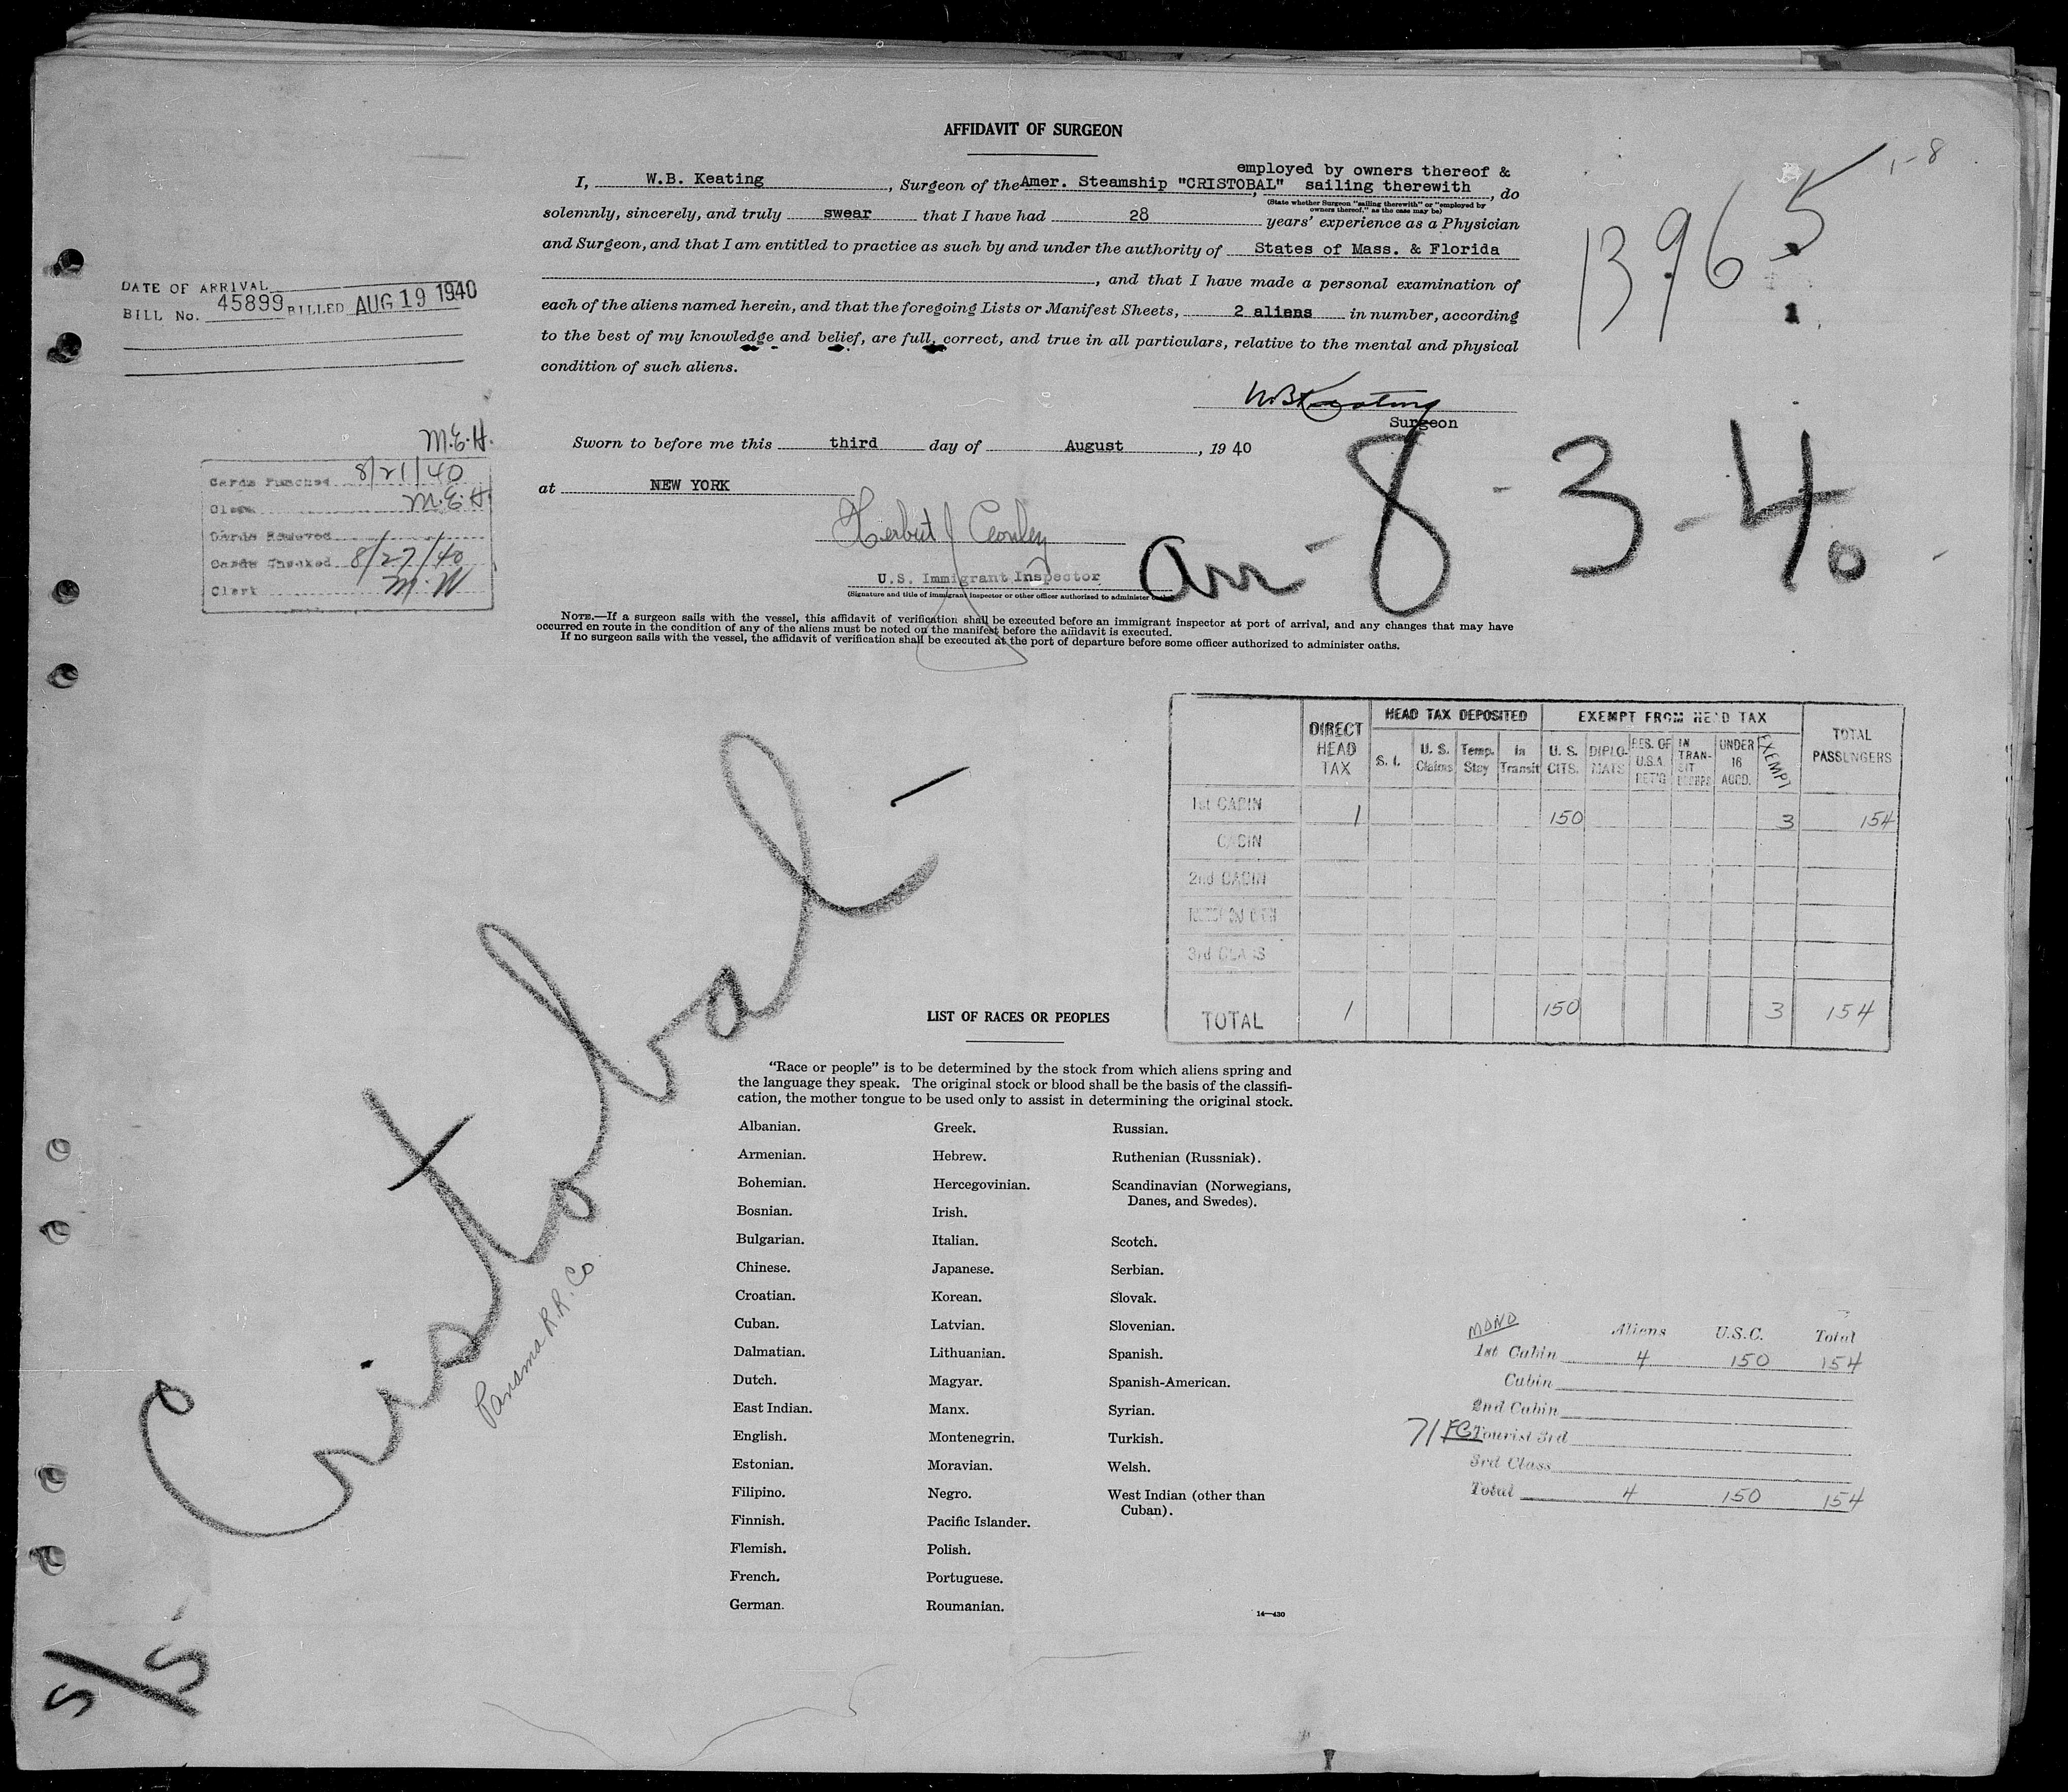 AFFIDAVIT OF SURGEON
employed by owners thereof &
I, W.B. Keating, Surgeon of the Amer. Steamship "CRISTOBAL", sailing therewith, do
(State whether Surgeon "sailing therewith" or "employed by
owners thereof," as the case may be)
solemnly, sincerely, and truly swear that I have had 28 years' experience as a Physician
and Surgeon, and that I am entitled to practice as such by and under the authority of States of Mass. & Florida
, and that I have made a personal examination of
each of the aliens named herein, and that the foregoing Lists or Manifest Sheets, 2 aliens in number, according
to the best of my knowledge and belief, are full, correct, and true in all particulars, relative to the mental and physical
condition of such aliens.
WBKeating
Surgeon
Sworn to before me this third day of August, 1940
at NEW YORK
Herbert J
U.S. Immigrant Inspector
(Signature and title of immigrant inspector or other officer authorized to administer
NOTE.—If a surgeon sails with the vessel, this affidavit of verification shall be executed before an immigrant inspector at port of arrival, and any changes that may have
occurred en route in the condition of any of the aliens must be noted on the manifest before the affidavit is executed.
If no surgeon sails with the vessel, the affidavit of verification shall be executed at the port of departure before some officer authorized to administer oaths.
1-8
13965
1
Arr - 8 - 3 - 40 -
DATE OF ARRIVAL
BILL No. 45899 BILLED AUG 19 1940
M.E.H.
Cards Punched 8/21/40
Clerk M.E.H.
Cards Removed
Cards Checked 8/27/40
Clerk M.W
DIRECT HEAD TAX
HEAD TAX DEPOSITED
EXEMPT FROM HEAD TAX
TOTAL PASSENGERS
S. I. U. S. Claims Temp. Stay In Transit U. S. CITS. DIPLOMATS RES. OF U.S.A. RET'G IN TRANSIT UNDER 16 ACCD. EXEMPT
1st CABIN 1 150 3 154
CABIN
2nd CABIN
3rd CLASS
TOTAL 1 150 3 154
S/S Cristobal -
Panama R.R. Co
LIST OF RACES OR PEOPLES
"Race or people" is to be determined by the stock from which aliens spring and
the language they speak. The original stock or blood shall be the basis of the classifi-
cation, the mother tongue to be used only to assist in determining the original stock.
Albanian.
Armenian.
Bohemian.
Bosnian.
Bulgarian.
Chinese.
Croatian.
Cuban.
Dalmatian.
Dutch.
East Indian.
English.
Estonian.
Filipino.
Finnish.
Flemish.
French.
German.
Greek.
Hebrew.
Hercegovinian.
Irish.
Italian.
Japanese.
Korean.
Latvian.
Lithuanian.
Magyar.
Manx.
Montenegrin.
Moravian.
Negro.
Pacific Islander.
Polish.
Portuguese.
Roumanian.
Russian.
Ruthenian (Russniak).
Scandinavian (Norwegians,
Danes, and Swedes).
Scotch.
Serbian.
Slovak.
Slovenian.
Spanish.
Spanish-American.
Syrian.
Turkish.
Welsh.
West Indian (other than
Cuban).
14—430
MONO Aliens U.S.C. Total
1st Cabin 4 150 154
Cabin
2nd Cabin
71 FC Tourist 3rd
3rd Class
Total 4 150 154